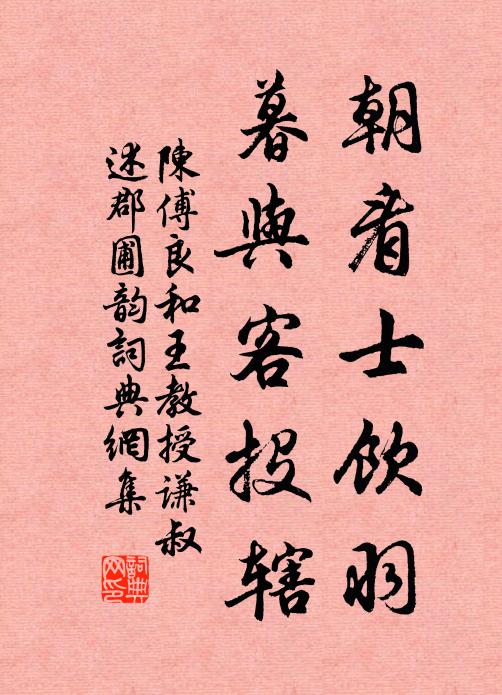 朝看士饮羽
暮與客投辖
陳傅良和王教授谦叔
述郡圃韵詞典網集
詞典网印